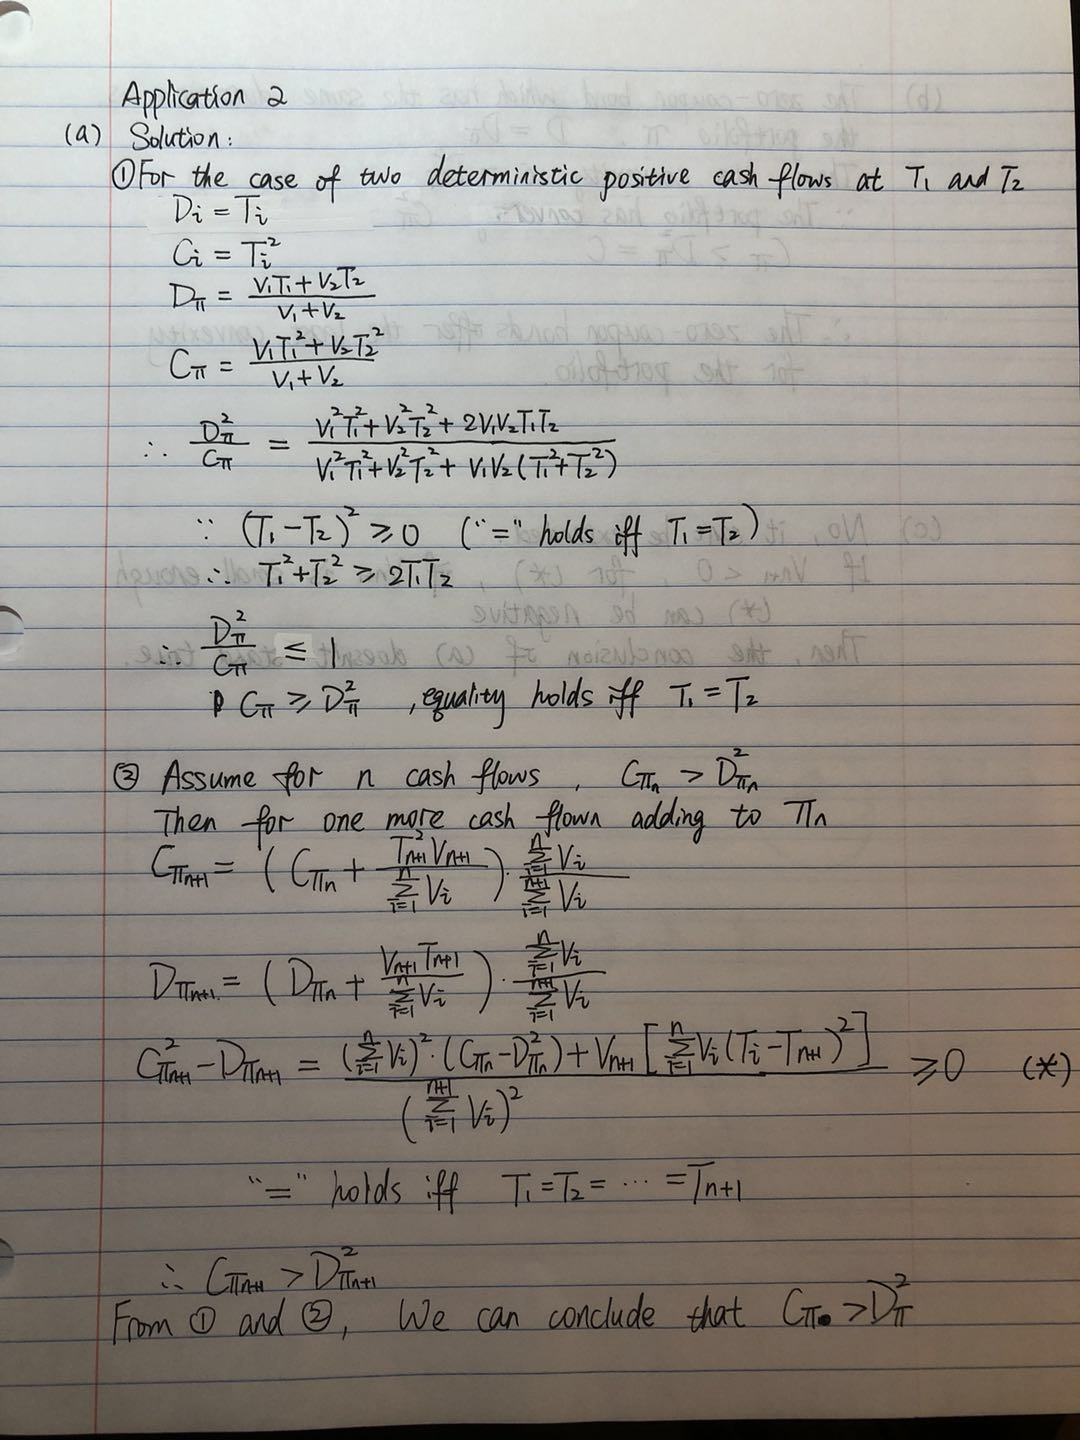 Application 2
(a) Solution:
①For the case of two deterministic positive cash flows at T₁ and T₂
Di = Ti
Ci = Ti²
Dπ = (V₁T₁+V₂T₂)/(V₁+V₂)
Cπ = (V₁T₁²+V₂T₂²)/(V₁+V₂)
∴ Dπ²/Cπ = (V₁²T₁²+V₂²T₂²+2V₁V₂T₁T₂)/(V₁²T₁²+V₂²T₂²+V₁V₂(T₁²+T₂²))
∵ (T₁-T₂)² ⩾ 0 ("=" holds iff T₁=T₂)
∴ T₁²+T₂² ⩾ 2T₁T₂
∴ Dπ²/Cπ ≤ 1
Cπ ⩾ Dπ² , equality holds iff T₁=T₂
② Assume for n cash flows , Cπn > Dπn²
Then for one more cash flown adding to πn
Cπn+1 = (Cπn + Tn+1²Vn+1/∑ⁿᵢ₌₁Vi)·∑ⁿᵢ₌₁Vi/∑ⁿ⁺¹ᵢ₌₁Vi
Dπn+1 = (Dπn + Vn+1Tn+1/∑ⁿᵢ₌₁Vi)·∑ⁿᵢ₌₁Vi/∑ⁿ⁺¹ᵢ₌₁Vi
C²πn+1 - Dπn+1 = ((∑ⁿᵢ₌₁Vi)²·(Cπn-Dπn²)+Vn+1[∑ⁿᵢ₌₁Vi(Ti-Tn+1)²])/(∑ⁿ⁺¹ᵢ₌₁Vi)² ⩾ 0 (*)
"=" holds iff T₁=T₂= ··· =Tn+1
∴ Cπn+1 > Dπn+1²
From ① and ②, We can conclude that Cπ > Dπ²